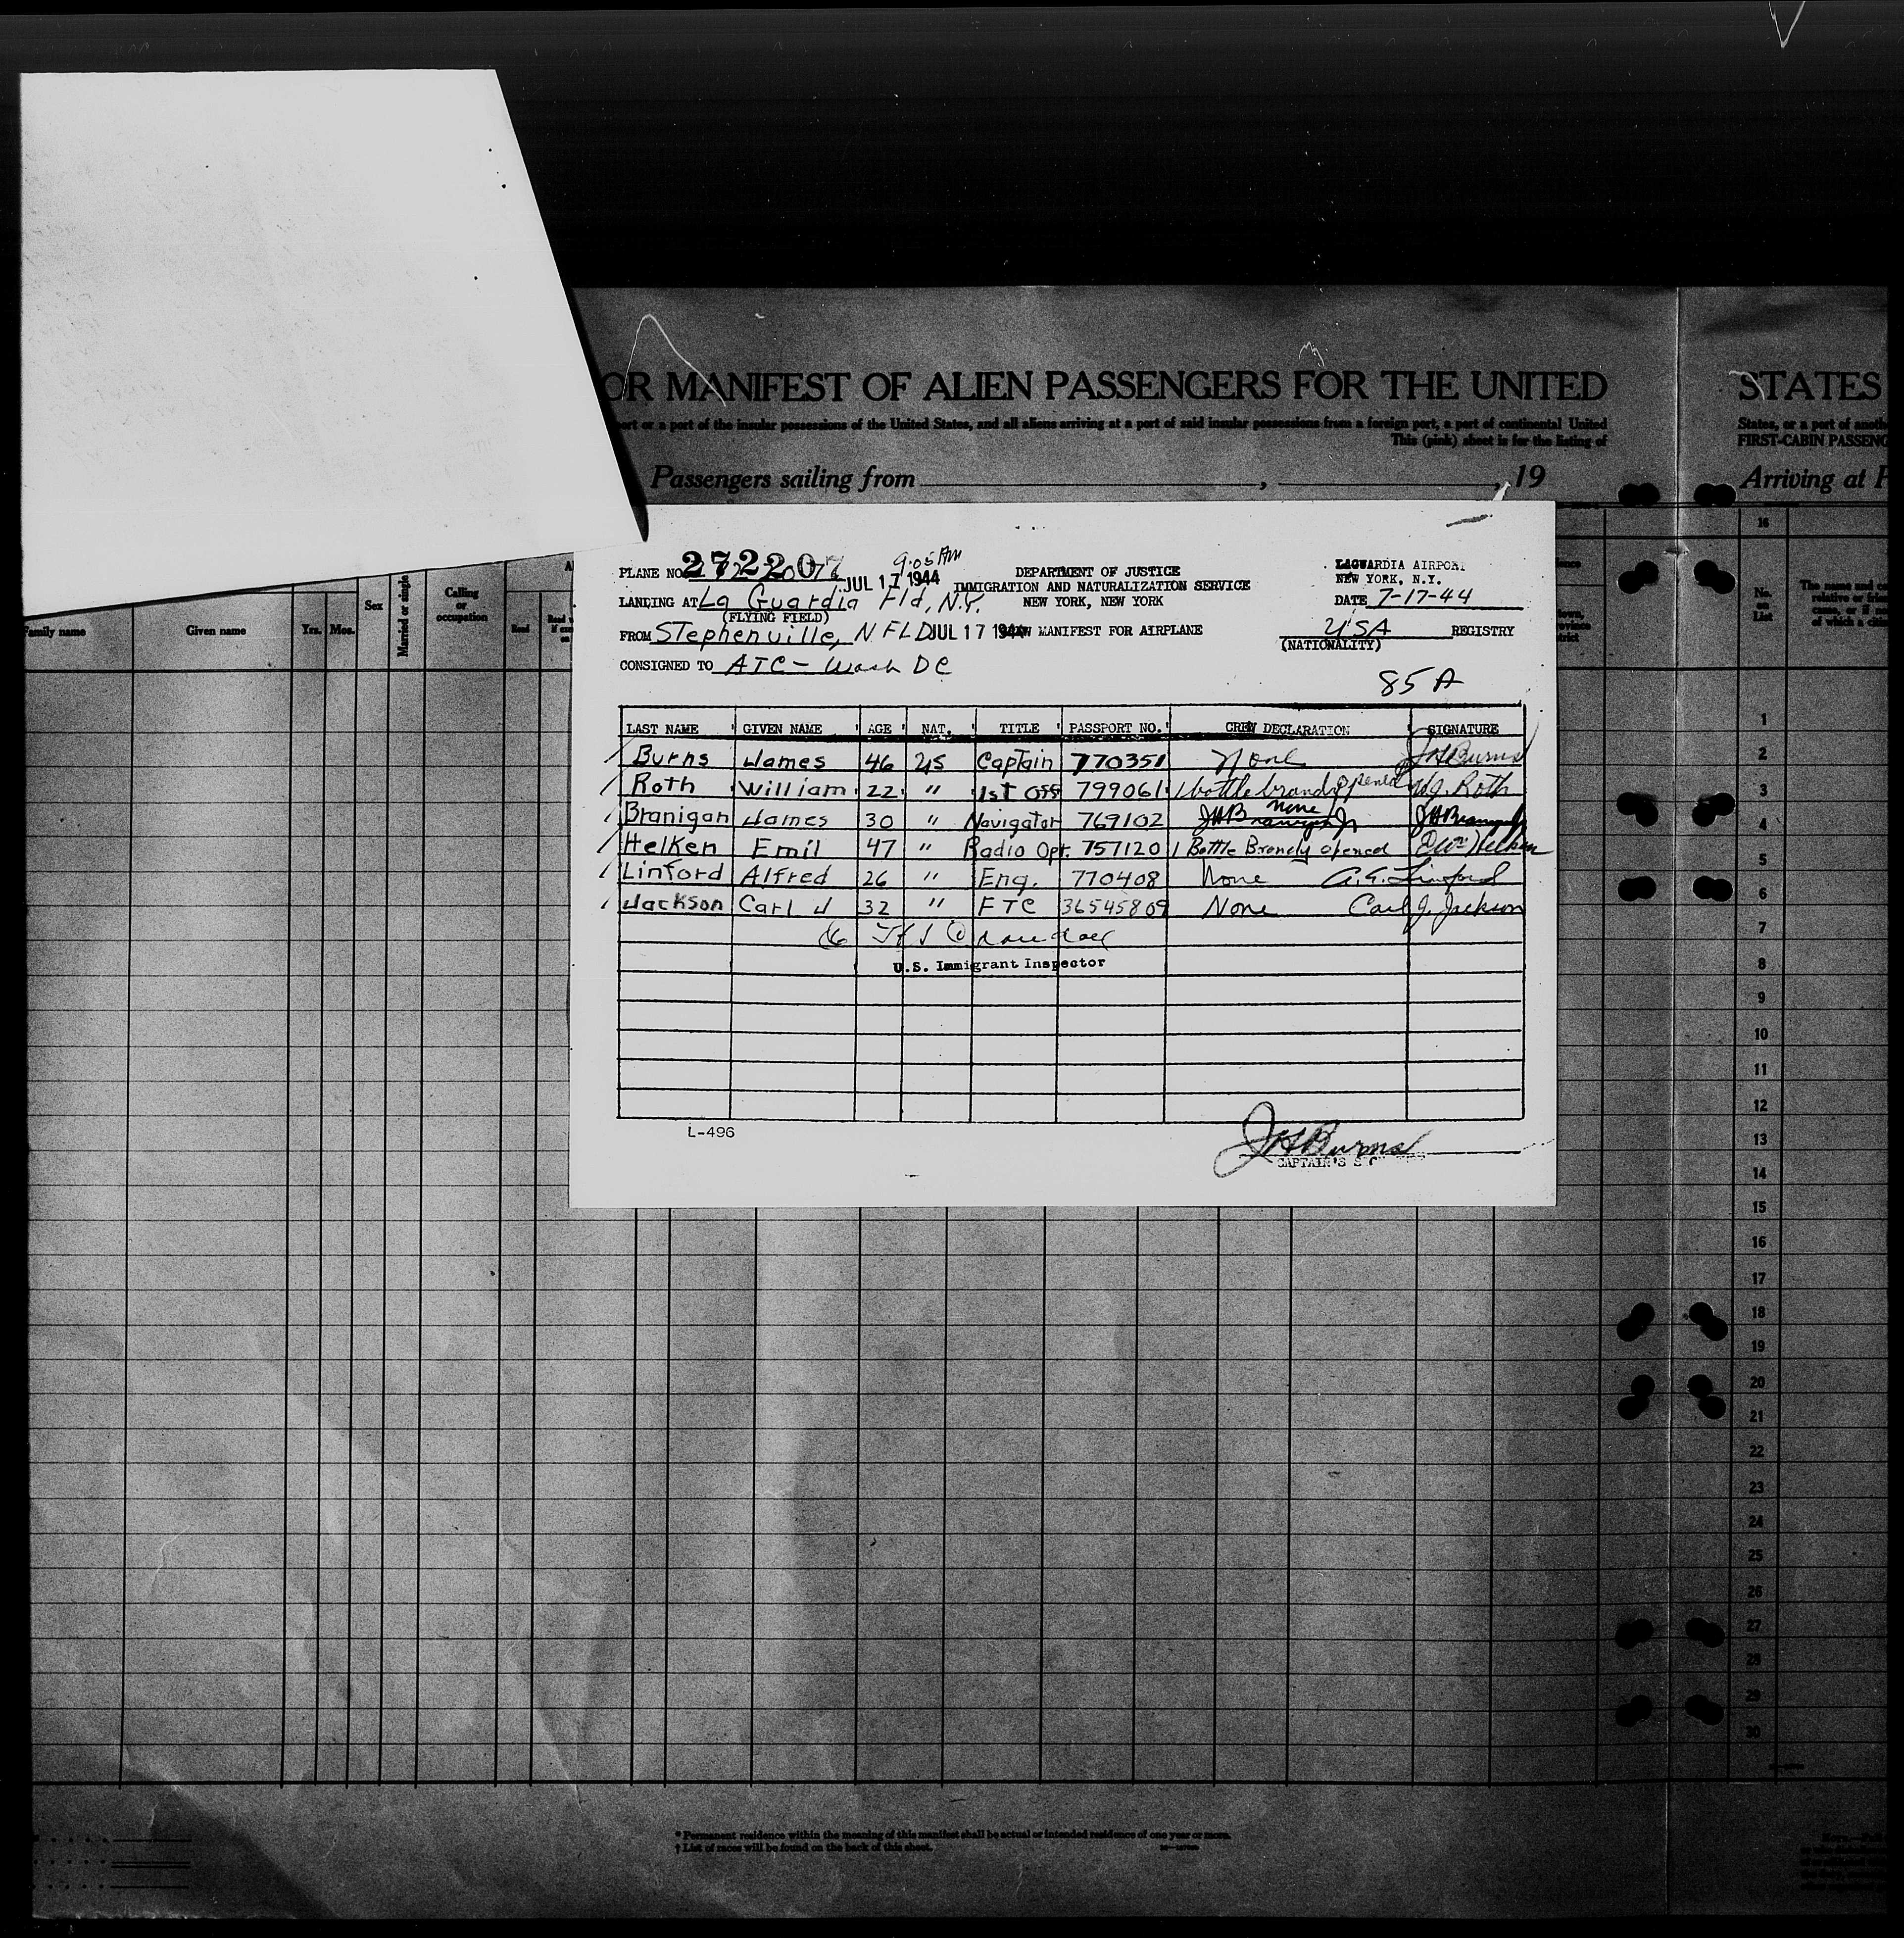 OR MANIFEST OF ALIEN PASSENGERS FOR THE UNITED STATES
port or a part of the insular possessions of the United States, and all aliens arriving at a port of said insular possessions from a foreign port, a part of continental United States, or a port of anoth
This (pink) sheet is for the listing of FIRST-CABIN PASSENG
Passengers sailing from , , 19 Arriving at P
PLANE NO. 272207 9:05 AM
JUL 17 1944
DEPARTMENT OF JUSTICE
IMMIGRATION AND NATURALIZATION SERVICE
NEW YORK, NEW YORK
LAGUARDIA AIRPORT
NEW YORK, N.Y.
LANDING AT La Guardia Fld, N.Y.
(FLYING FIELD)
DATE 7-17-44
FROM Stephenville, NFLD JUL 17 1944 MANIFEST FOR AIRPLANE
USA REGISTRY
(NATIONALITY)
CONSIGNED TO ATC - Wash DC
85 A
LAST NAME GIVEN NAME AGE NAT. TITLE PASSPORT NO. CREW DECLARATION SIGNATURE
Burns James 46 US Captain 770351 None JHBurns
Roth William 22 " 1st Off 799061 1 bottle brandy opened Wg. Roth
Branigan James 30 " Navigator 769102 None JHBranigan Jr
Helken Emil 47 " Radio Opr. 757120 1 Bottle Brandy opened Helken
Linford Alfred 26 " Eng. 770408 None A. E. Linford
Jackson Carl J 32 " FTC 36545809 None Carl J. Jackson
U.S. Immigrant Inspector
L-496
JHBurns
CAPTAIN'S
Family name
Given name
Yrs.
Mos.
Sex
Married or single
Calling or occupation
Read
No. on List
16
1
2
3
4
5
6
7
8
9
10
11
12
13
14
15
16
17
18
19
20
21
22
23
24
25
26
27
28
29
30
* Permanent residence within the meaning of this manifest shall be actual or intended residence of one year or more.
† List of races will be found on the back of this sheet.